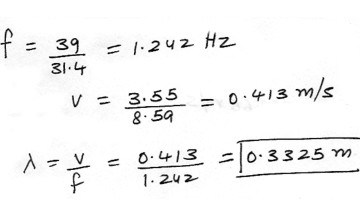 f = 39/31.4 = 1.242 Hz
v = 3.55/8.59 = 0.413 m/s
λ = v/f = 0.413/1.242 = 0.3325 m